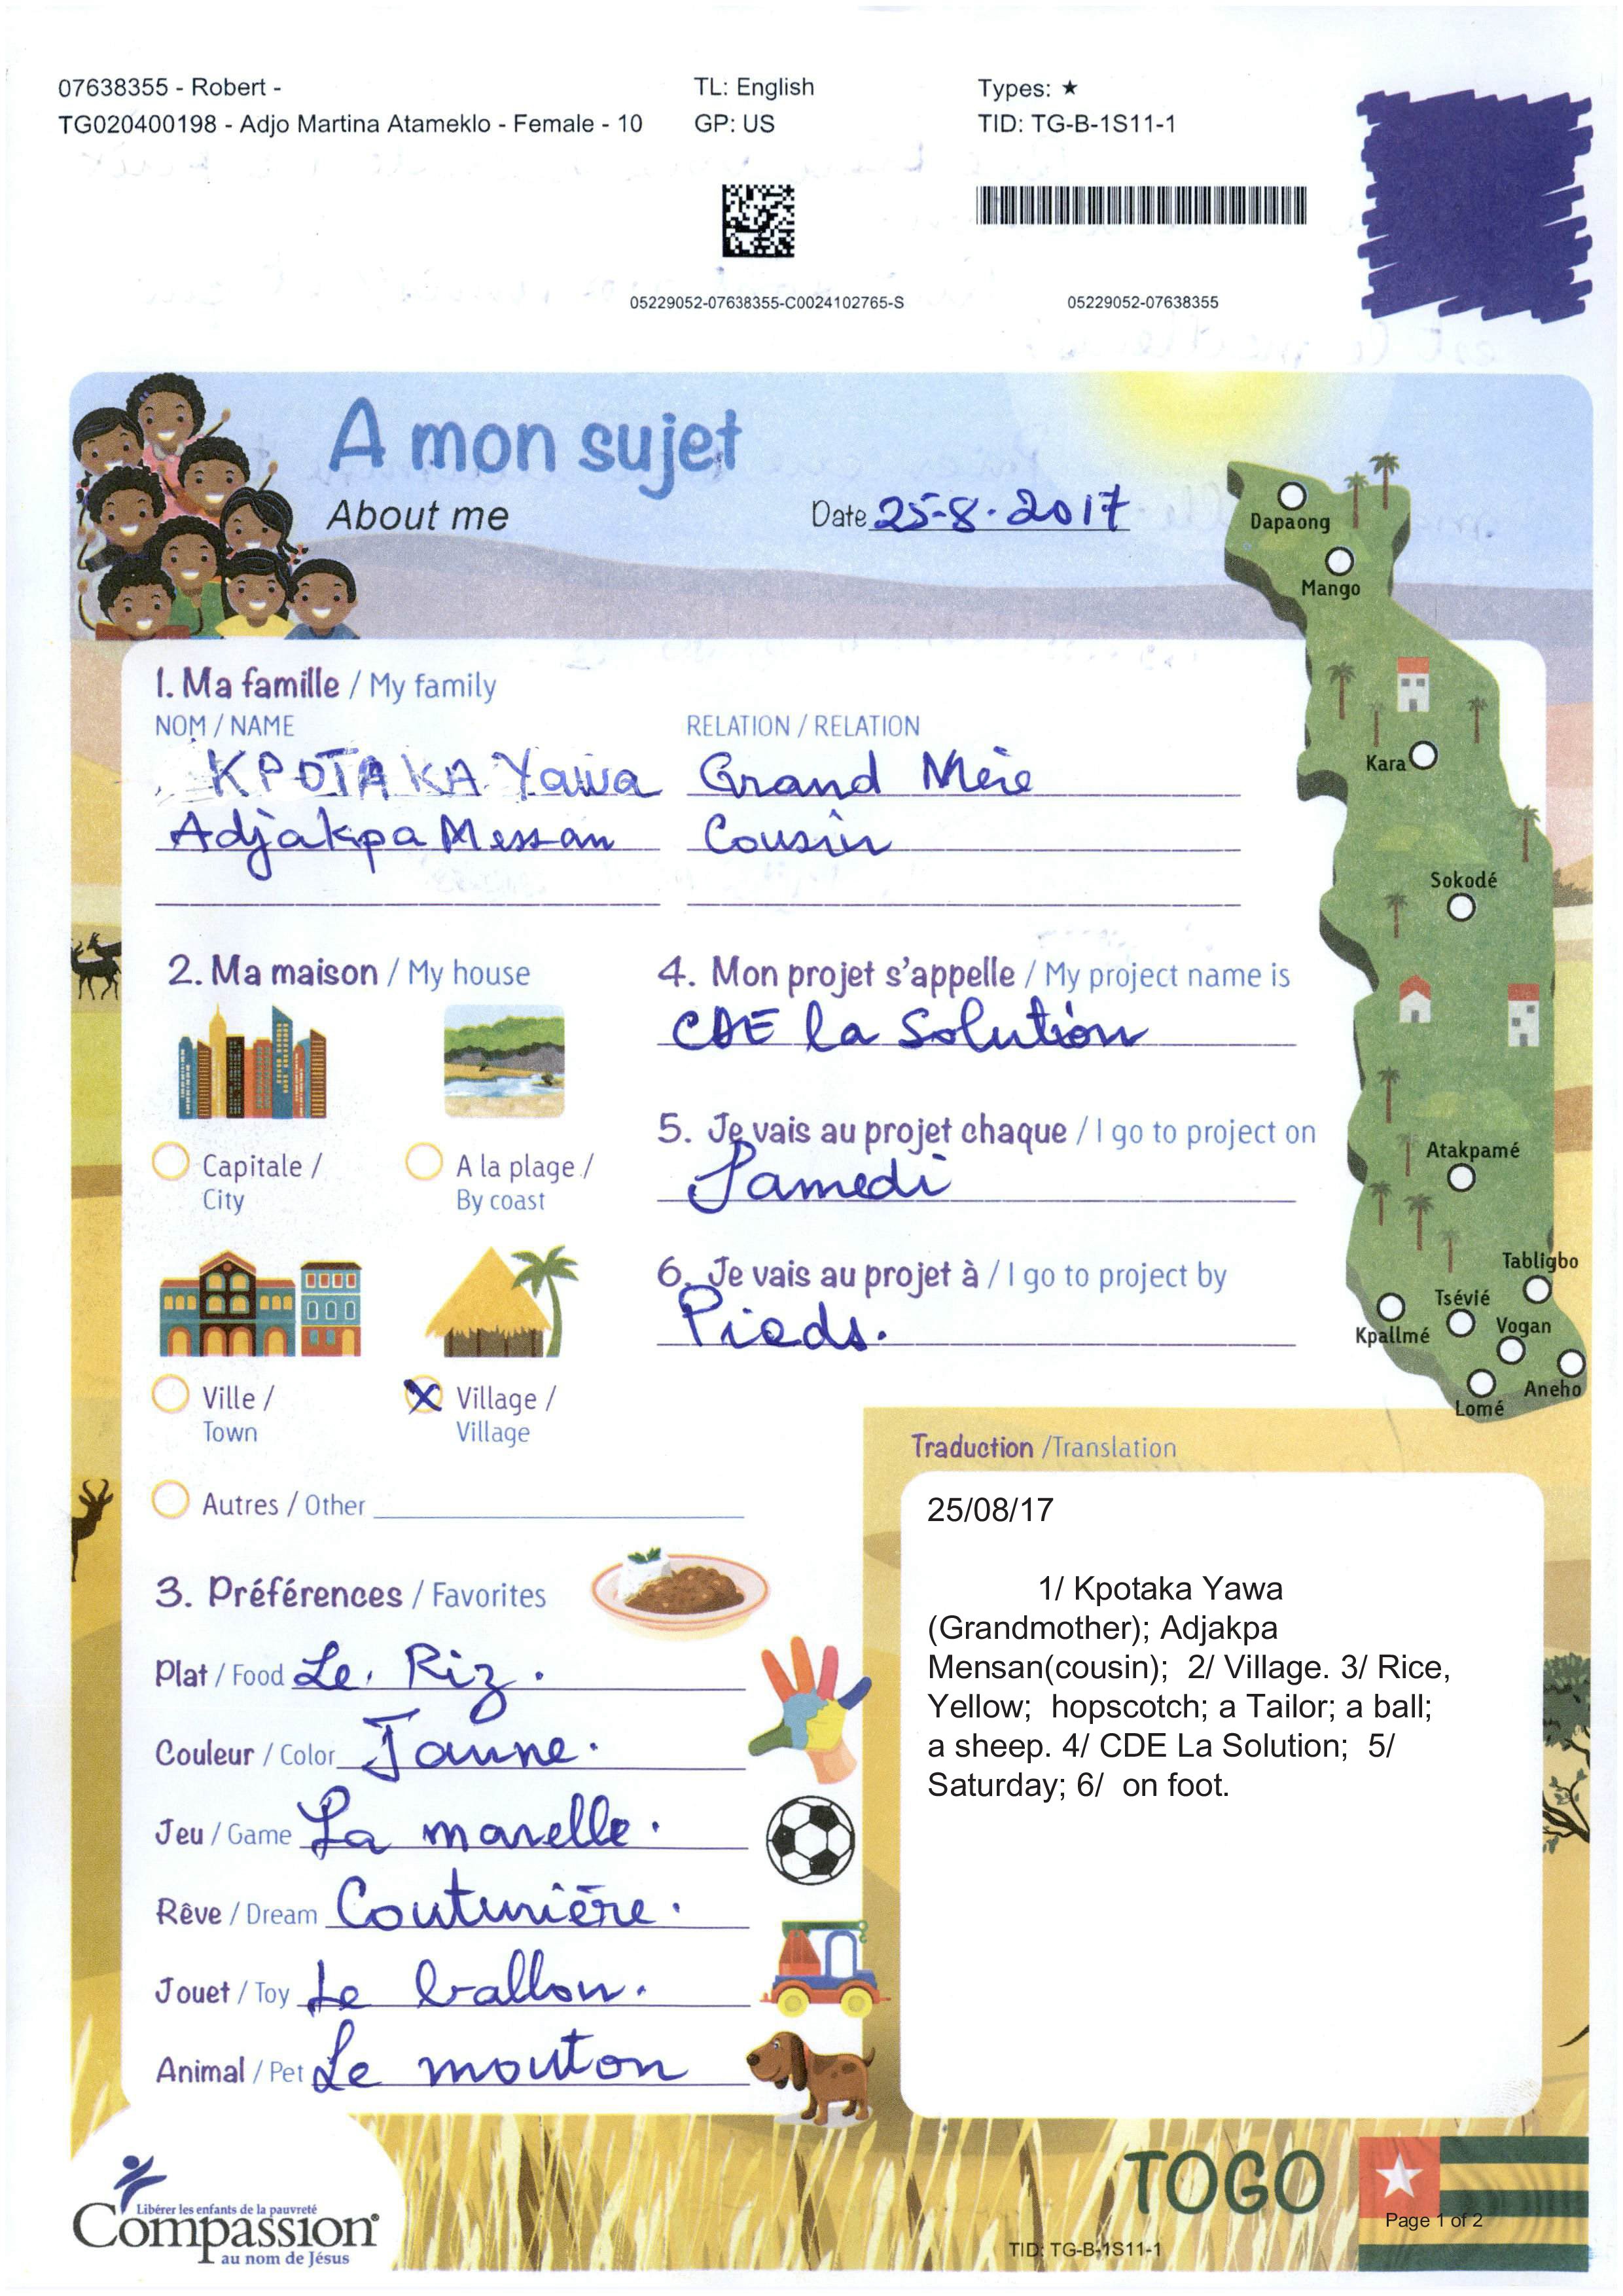 07638355 - Robert -
TG020400198 - Adjo Martina Atameklo - Female - 10
TL: English
GP: US
Types: ★
TID: TG-B-1S11-1
05229052-07638355-C0024102765-S
05229052-07638355
A mon sujet
About me
Date 25-8-2017
Dapaong
Mango
Kara
Sokodé
Atakpamé
Tabligbo
Tsévié
Kpallmé
Vogan
Aneho
Lomé
1. Ma famille / My family
NOM / NAME RELATION / RELATION
KPOTAKA Yawa Grand Mère
Adjakpa Messan Cousin
2. Ma maison / My house
Capitale /
City
A la plage /
By coast
Ville /
Town
Village /
Village
Autres / Other
3. Préférences / Favorites
Plat / Food Le Riz.
Couleur / Color Jaune.
Jeu / Game La marelle.
Rêve / Dream Couturière.
Jouet / Toy Le ballon.
Animal / Pet Le mouton
4. Mon projet s'appelle / My project name is
CDE la Solution
5. Je vais au projet chaque / I go to project on
Samedi
6. Je vais au projet à / I go to project by
Pieds.
Traduction /Translation
25/08/17
1/ Kpotaka Yawa
(Grandmother); Adjakpa
Mensan(cousin); 2/ Village. 3/ Rice,
Yellow; hopscotch; a Tailor; a ball;
a sheep. 4/ CDE La Solution; 5/
Saturday; 6/ on foot.
Libérer les enfants de la pauvreté
Compassion®
au nom de Jésus
TOGO
Page 1 of 2
TID: TG-B-1S11-1